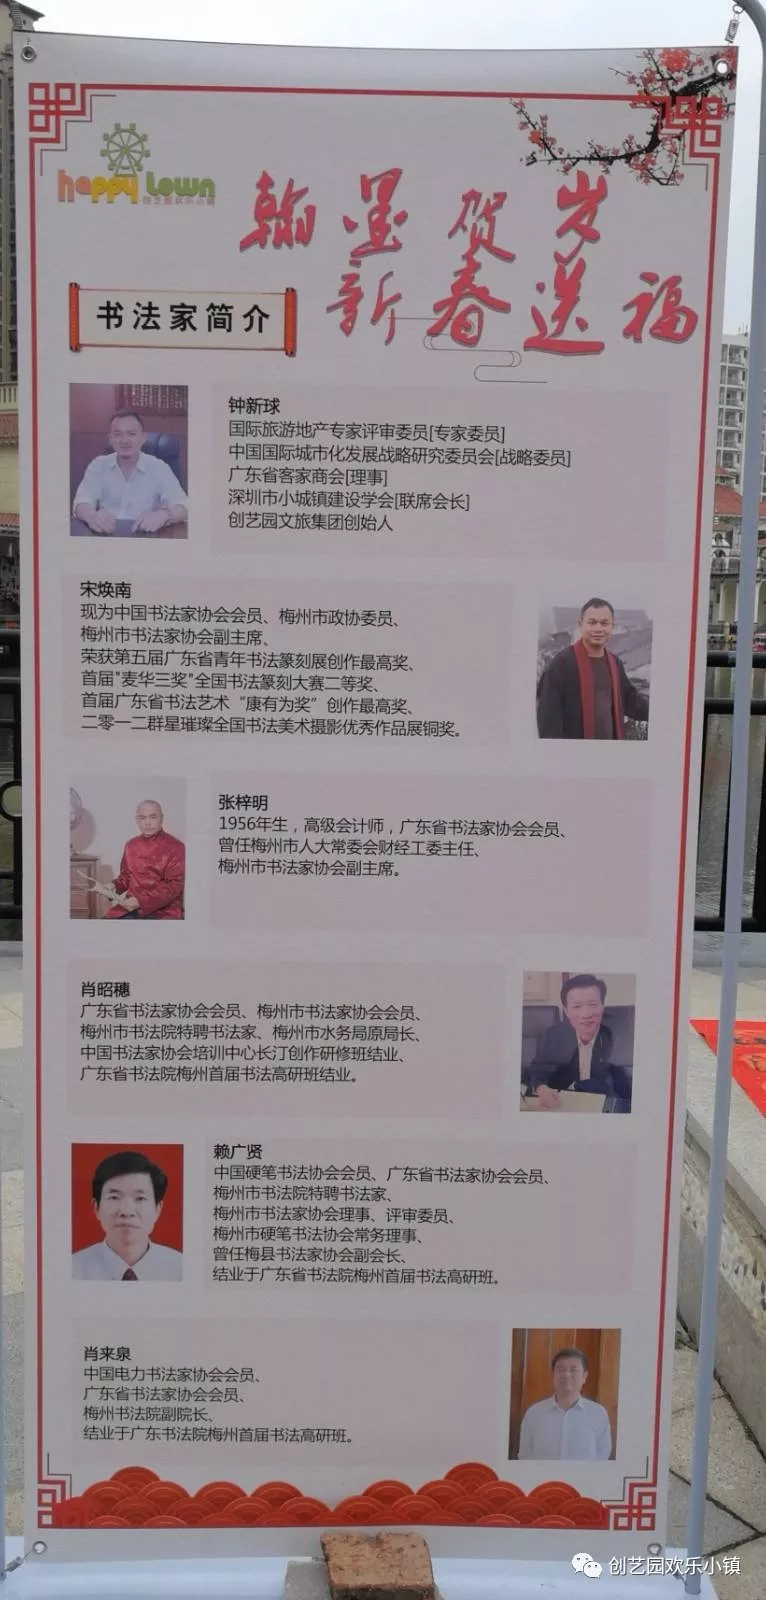 happy town
创艺园欢乐小镇
翰墨贺岁
新春送福
书法家简介
钟新球
国际旅游地产专家评审委员[专家委员]
中国国际城市化发展战略研究委员会[战略委员]
广东省客家商会[理事]
深圳市小城镇建设学会[联席会长]
创艺园文旅集团创始人
宋焕南
现为中国书法家协会会员、梅州市政协委员、
梅州市书法家协会副主席、
荣获第五届广东省青年书法篆刻展创作最高奖、
首届"麦华三奖"全国书法篆刻大赛二等奖、
首届广东省书法艺术“康有为奖”创作最高奖、
二零一二群星璀璨全国书法美术摄影优秀作品展铜奖。
张梓明
1956年生，高级会计师，广东省书法家协会会员、
曾任梅州市人大常委会财经工委主任、
梅州市书法家协会副主席。
肖昭穗
广东省书法家协会会员、梅州市书法家协会会员、
梅州市书法院特聘书法家、梅州市水务局原局长、
中国书法家协会培训中心长汀创作研修班结业、
广东省书法院梅州首届书法高研班结业。
赖广贤
中国硬笔书法协会会员、广东省书法家协会会员、
梅州市书法院特聘书法家、
梅州市书法家协会理事、评审委员、
梅州市硬笔书法协会常务理事、
曾任梅县书法家协会副会长、
结业于广东省书法院梅州首届书法高研班。
肖来泉
中国电力书法家协会会员、
广东省书法家协会会员、
梅州书法院副院长、
结业于广东书法院梅州首届书法高研班。
创艺园欢乐小镇